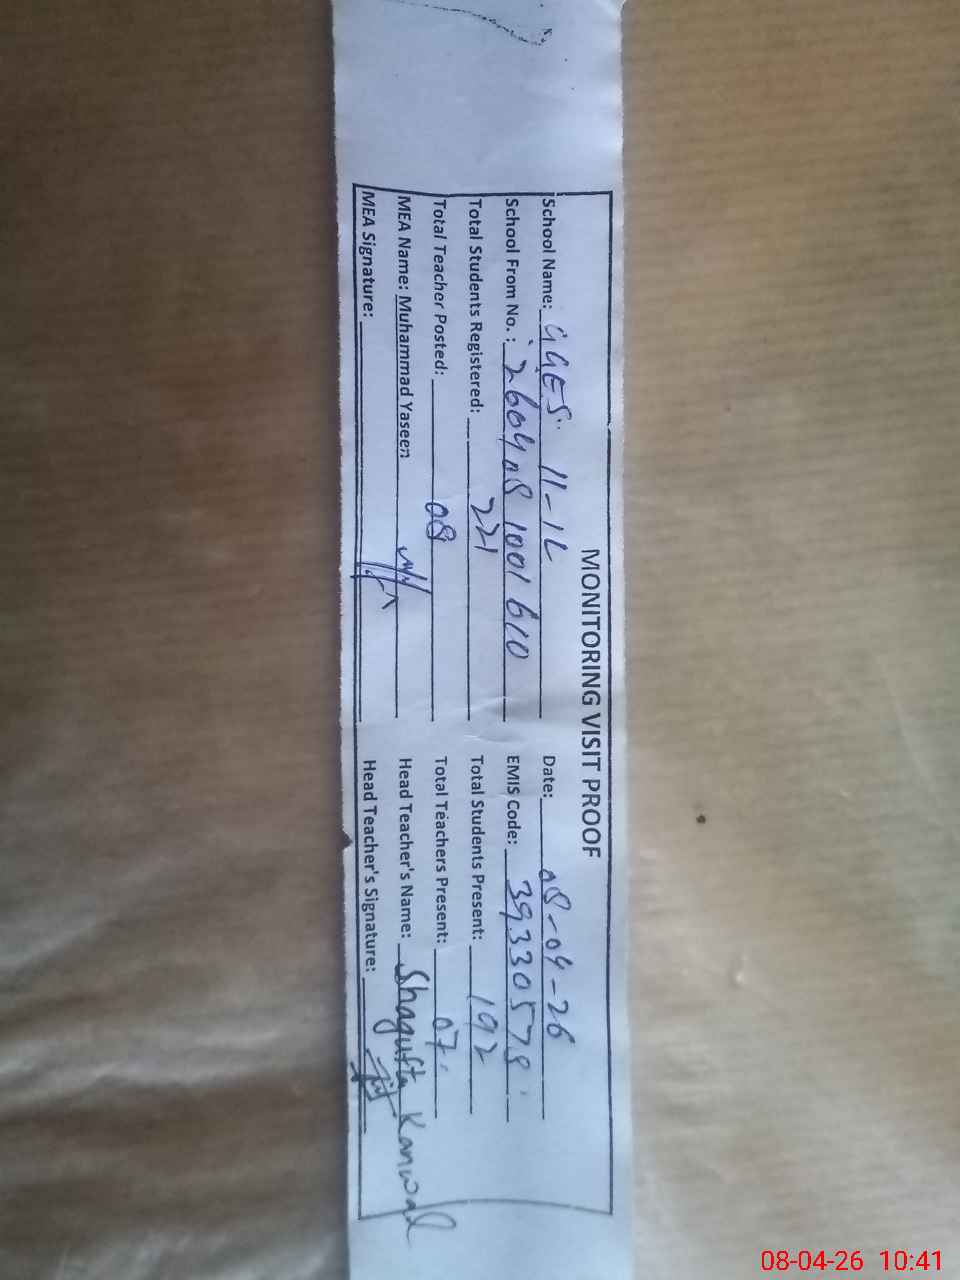 MONITORING VISIT PROOF
School Name: GGES 11-1L Date: 08-04-26
School From No. : 260408 1001 610 EMIS Code: 39330578
Total Students Registered: 221 Total Students Present: 192
Total Teacher Posted: 08 Total Teachers Present: 07
MEA Name: Muhammad Yaseen Head Teacher's Name: Shagufta Kanwal
MEA Signature: Head Teacher's Signature:
08-04-26 10:41